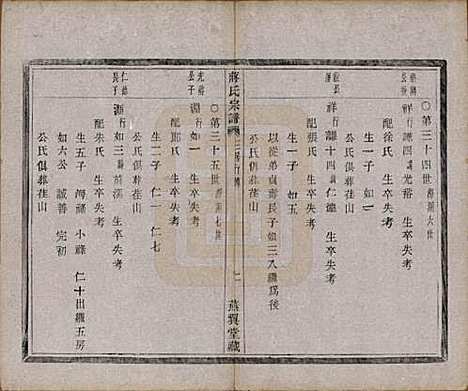 ○第三十四世
祥行 諱四 諱光裕 生卒失考
配徐氏 生卒失考
生一子 如一
公氏俱葬茬山
祥行 諱十四 諱仁德 生卒失考
配張氏 生卒失考
生一子 如五
以從弟貞壽長子如三八繼爲後
○第三十五世
淵行 如一 生卒失考
配鄭氏 生卒失考
生二子 仁一 仁七
公氏俱葬茬山
淵行 如三 生卒失考
配朱氏 生卒失考
生五子 海祿 小祿 仁十出繼五房
如六公 誠善 完初
公氏俱葬茬山
蔣氏宗譜
燕翼堂藏